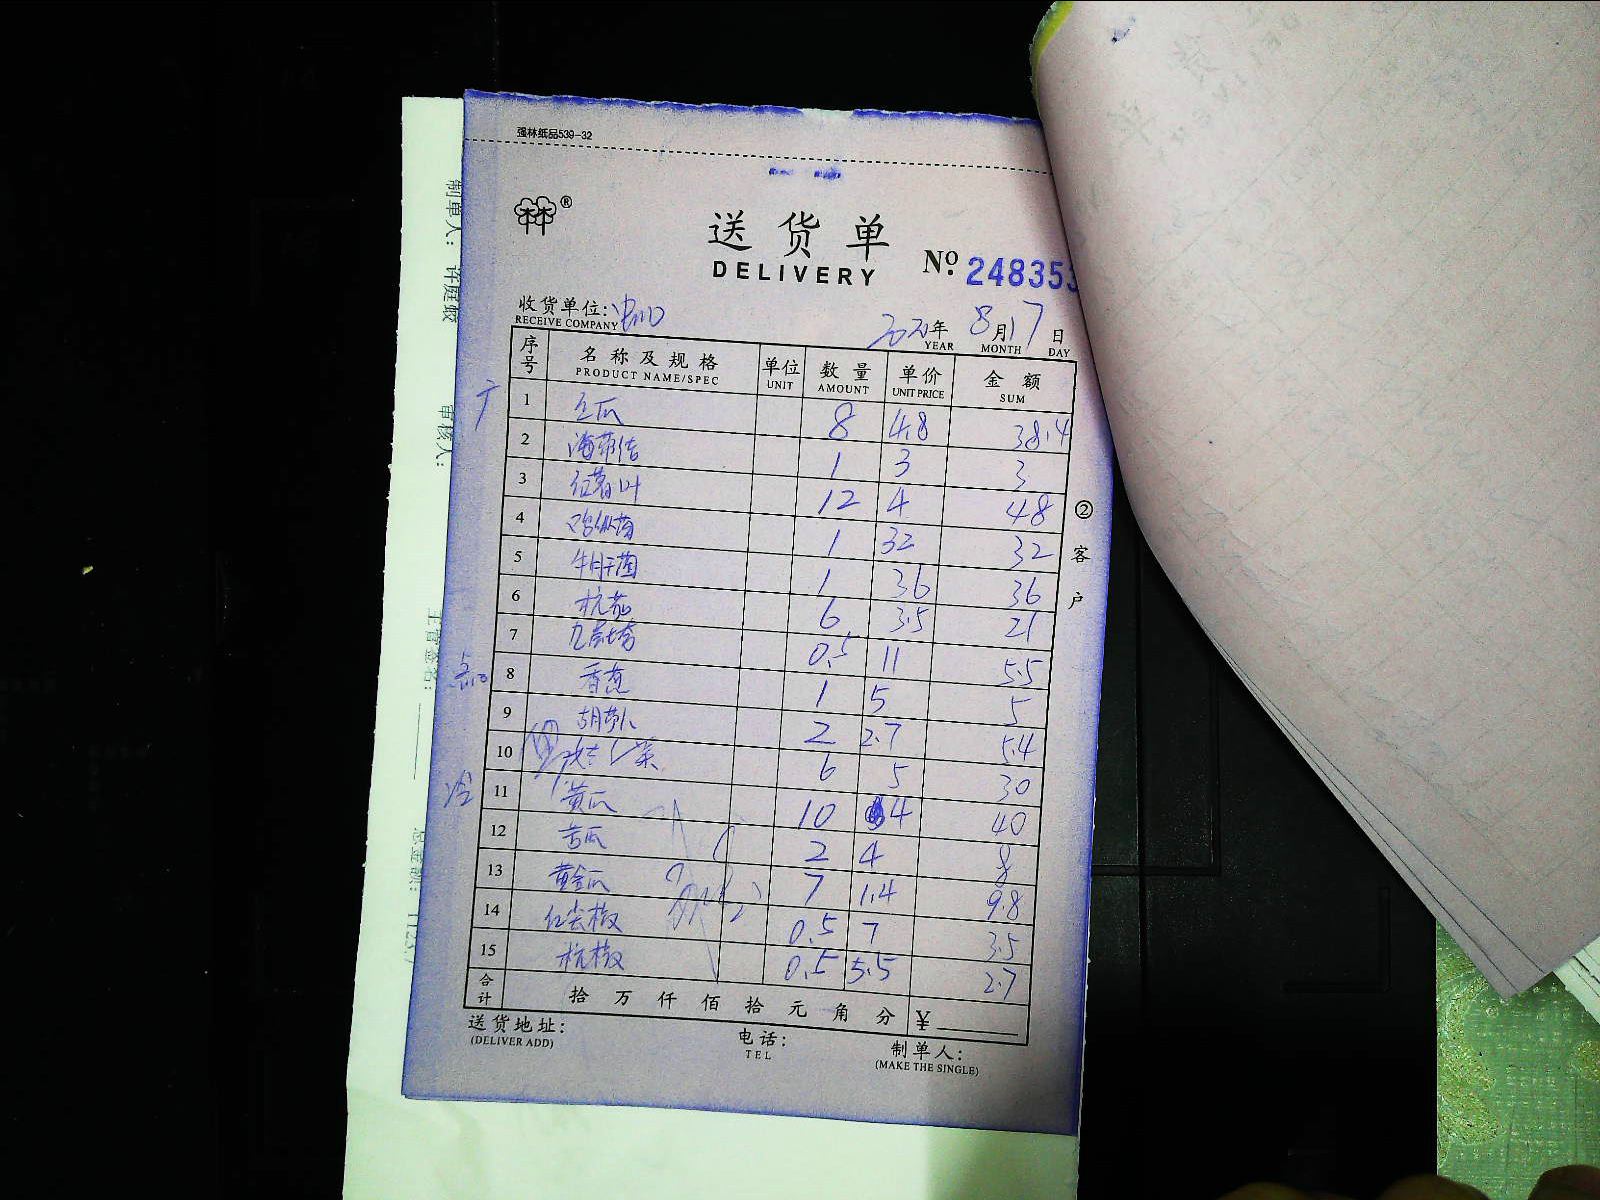 强林纸品539-32
林®
送货单
DELIVERY
№ 248353
收货单位:
RECEIVE COMPANY
年 8月17日
YEAR MONTH DAY
序号 名称及规格 单位 数量 单价 金额
PRODUCT NAME/SPEC UNIT AMOUNT UNIT PRICE SUM
1 瓜 8 4.8 38.4
2 海带结 1 3 3
3 红薯叶 12 4 48
4 鸡枞菌 1 32 32
5 牛肝菌 1 36 36
6 杭茄 6 3.5 21
7 九层塔 0.5 11 5.5
8 香葱 1 5 5
9 胡萝卜 2 2.7 5.4
10 菜 6 5 30
11 黄瓜 10 4 40
12 苦瓜 2 4 8
13 黄金瓜 7 1.4 9.8
14 红尖椒 0.5 7 3.5
15 杭椒 0.5 5.5 2.7
合计 拾 万 仟 佰 拾 元 角 分 ¥
送货地址:
(DELIVER ADD)
电话:
TEL
制单人:
(MAKE THE SINGLE)
②客户
冷
制单人: 许庭
审核人:
主管签名:
总金额: